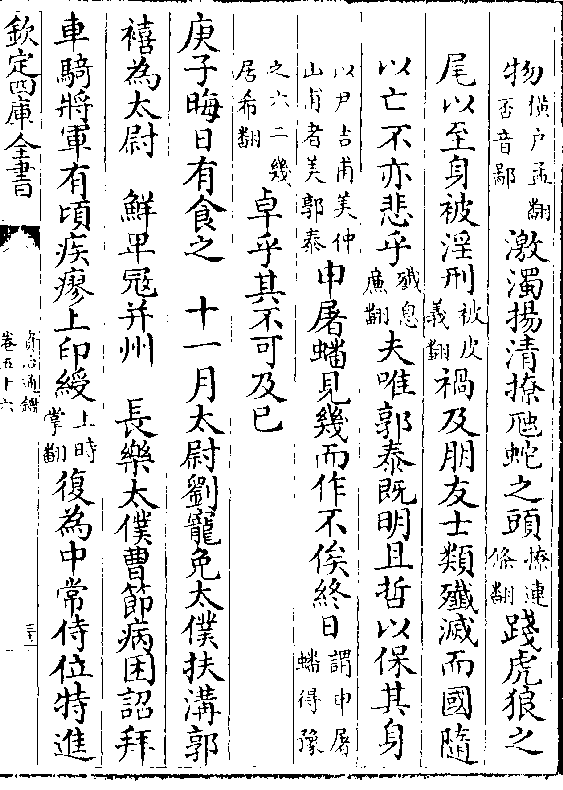 物橫户孟翻否音鄙激濁揚清撩虺蛇之頭撩連條翻踐虎狼之
尾以至身被淫刑被皮義翻禍及朋友士類殲滅而國隨
以亡不亦悲乎殲息亷翻夫唯郭泰既明且哲以保其身
以尹吉甫美仲山甫者美郭泰申屠蟠見幾而作不俟終日謂申屠蟠得豫
之六二幾居希翻卓乎其不可及已
庚子晦日有食之　十一月太尉劉寵免太僕扶溝郭
禧為太尉　鮮卑冦并州　長樂太僕曹節病困詔拜
車騎將軍有頃疾瘳上印綬上時掌翻復為中常侍位特進
欽定四庫全書
資治通鑑
卷五十六